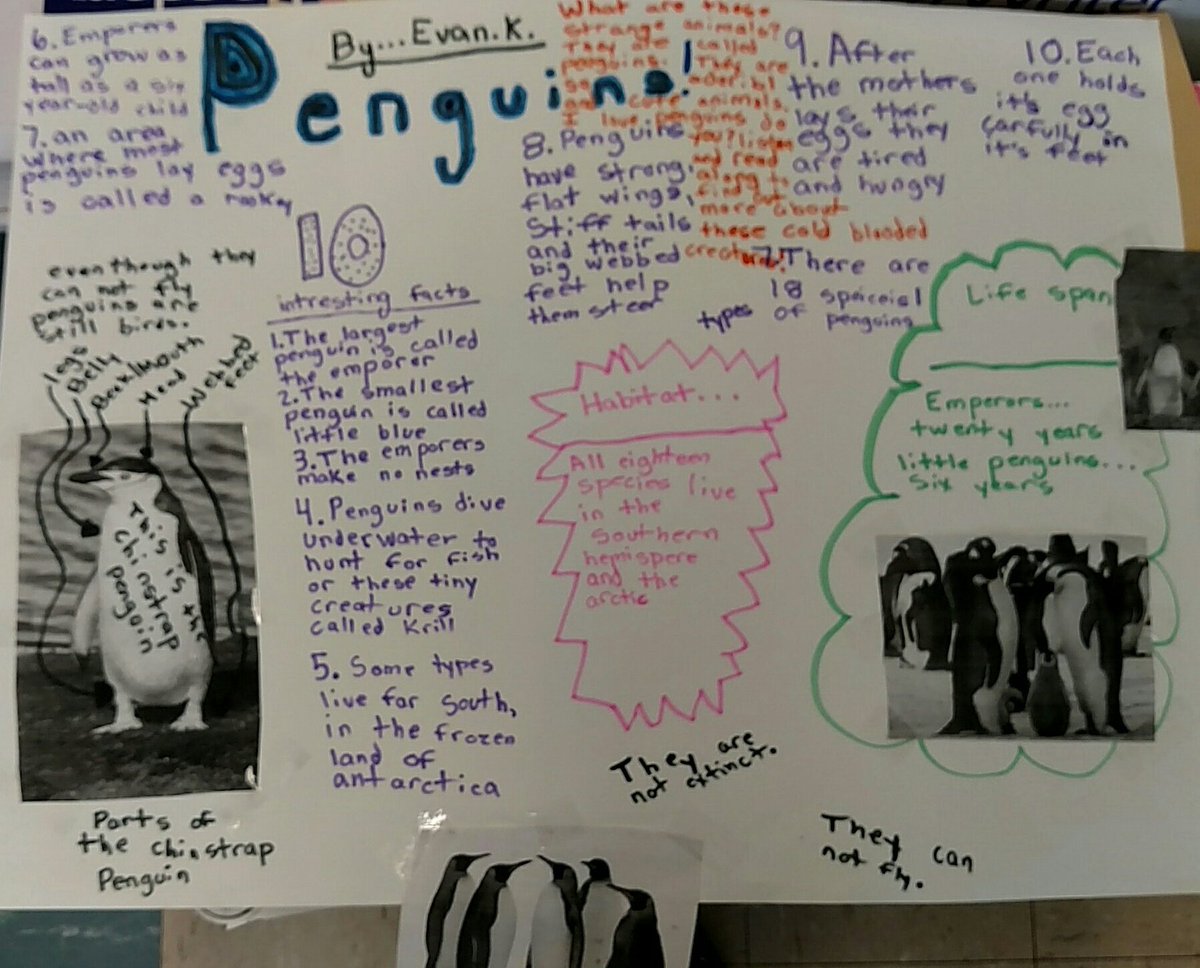 Penguins!
By...Evan.K.
What are these
strange animals?
They are called
penguins. They are
and cute animals.
I love penguins do
you? listen
and read
along to
find out
more about
these cold blooded
creatures!
10
intresting facts
1.The largest
penguin is called
the emporer
2.The smallest
penguin is called
little blue
3.The emporers
make no nests
4.Penguins dive
underwater to
hunt for fish
or these tiny
creatures
called Krill
5. Some types
live far South,
in the frozen
land of
antarctica
6.Emporers
can grow as
tall as a six
year-old child
7. an area
where most
penguins lay eggs
is called a rookey
8. Penguins
have strong,
flat wings,
Stiff tails
and their
big webbed
feet help
them steer
9. After
the mothers
lays their
eggs they
are tired
and hungry
10. Each
one holds
it's egg
carfully in
it's feet
There are
18 spaceial
types of penguins
even though they
can not fly
penguins are
still birds.
legs
Belly
Beak/Mouth
Head
Webbed
feet
This is the
chinstrap
penguin
Parts of
the chinstrap
Penguin
Habitat...
All eighteen
species live
in the
Southern
hemispere
and the
arctic
Life span
Emperors...
twenty years
little penguins...
Six years
They are
not extinct.
They can
not fly.